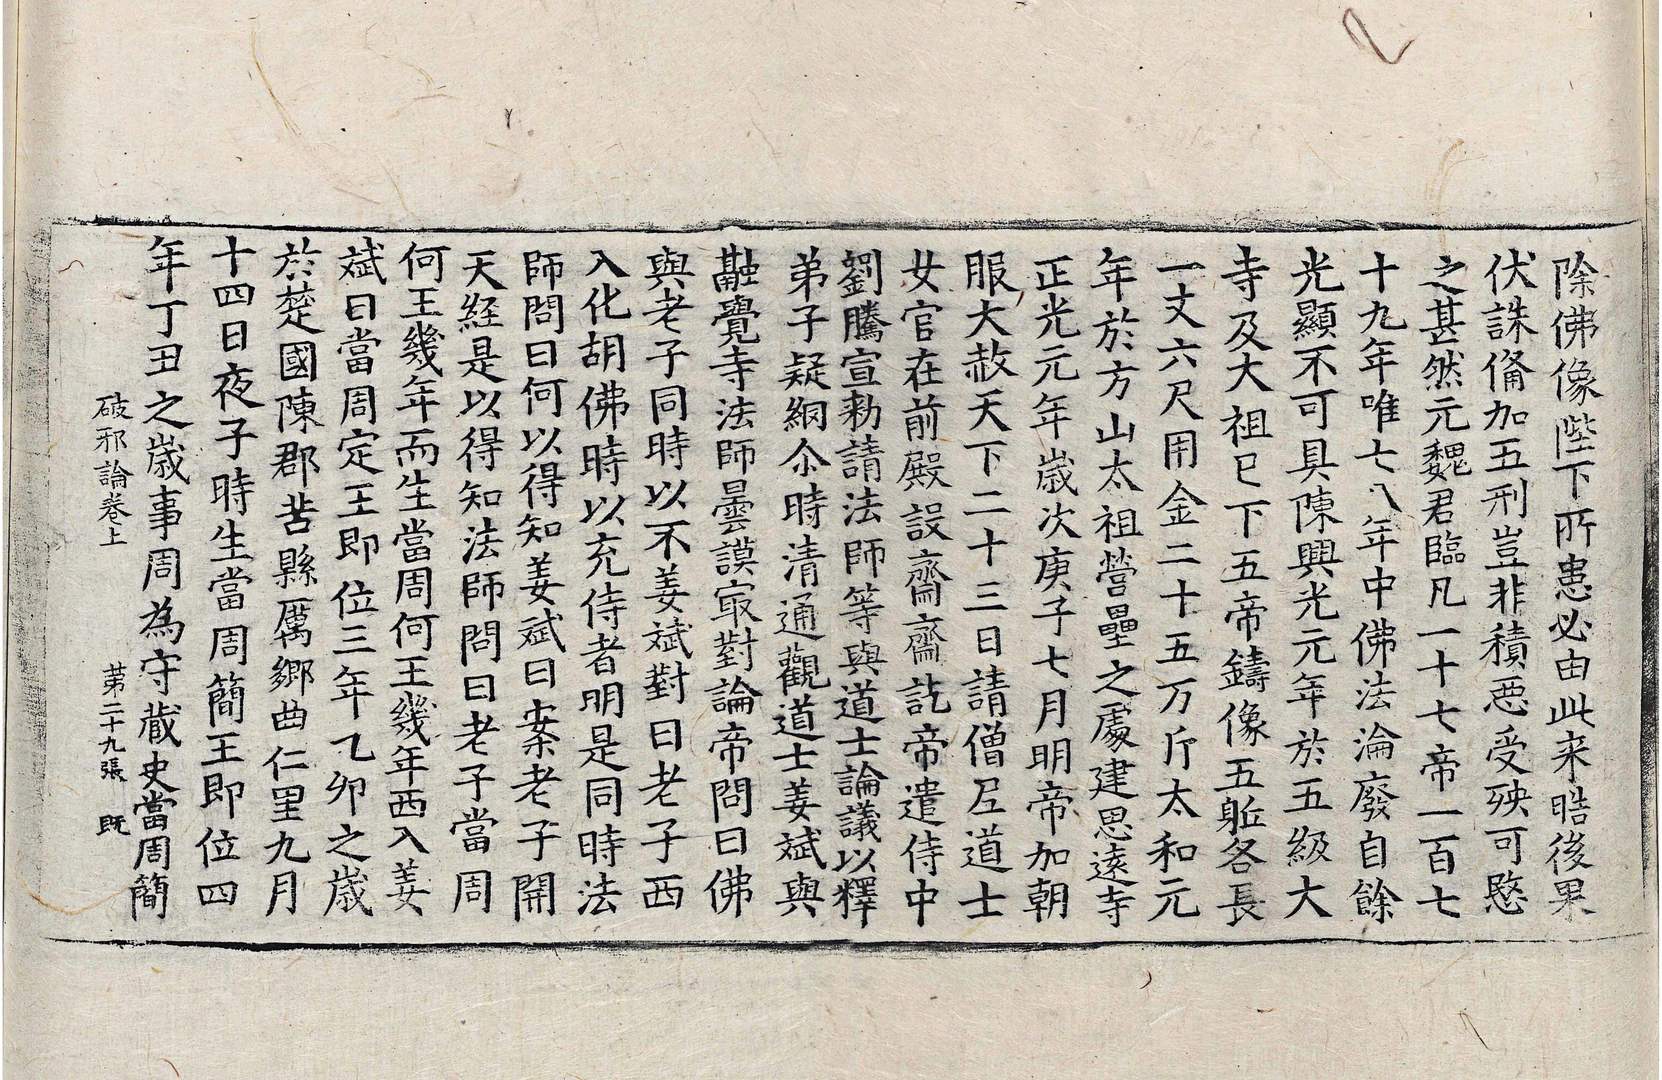 除佛像陛下所患必由此来晧後果
伏誅俻加五刑豈非積惡受殃可愍
之甚然元魏君臨凡一十七帝一百七
十九年唯七八年中佛法淪廢自餘
光顯不可具陳興光元年於五級大
寺及大祖已下五帝鑄像五軀各長
一丈六尺用金二十五万斤太和元
年於方山太祖營壘之處建思遠寺
正光元年歲次庚子七月明帝加朝
服大赦天下二十三日請僧尼道士
女官在前殿設齋齋訖帝遣侍中
劉騰宣勅請法師等與道士論議以釋
弟子疑網尒時清通觀道士姜斌與
融覺寺法師曇謨㝡對論帝問曰佛
與老子同時以不姜斌對曰老子西
入化胡佛時以充侍者明是同時法
師問曰何以得知姜斌曰案老子開
天経是以得知法師問曰老子當周
何王幾年而生當周何王幾年西入姜
斌曰當周定王即位三年乙卯之歲
於楚國陳郡苦縣厲鄉曲仁里九月
十四日夜子時生當周簡王即位四
年丁丑之歲事周為守藏史當周簡
破邪論卷上 第二十九張 既